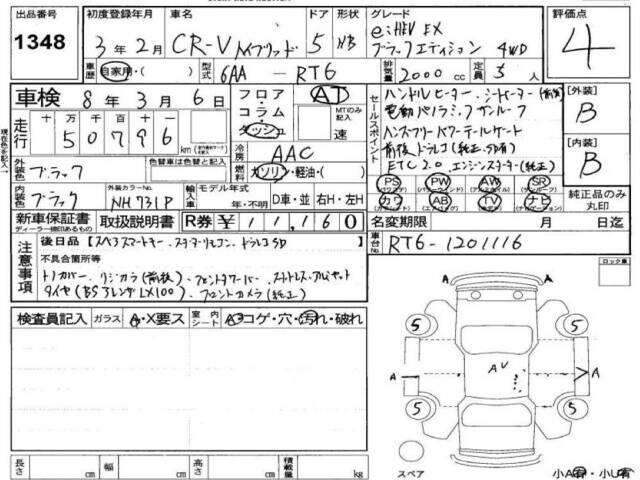 出品番号
1348
初度登録年月
3年2月
車名
CR-Vハイブリッド
ドア
5
形状
NB
グレード
e:HEV EX
ブラックエディション 4WD
評価点
4
車歴
自家用・( )
型式
6AA - RT6
排気量
2000 cc
定員
5人
車検
8年3月6日
走行
十万千百十
50796
km
フロア・
コラム
ダッシュ
AT
MTのみ記入
速
セールスポイント
ハンドルヒーター シートヒーター(前席)
電動パノラミックサンルーフ
ハンズフリーパワーテールゲート
前後ドラレコ(純正、SD有)
ETC2.0 エンジンスターター(純正)
[外装]
B
[内装]
B
現在色を記入
外装色
ブラック
色替車は色替と記入
冷房
AAC
燃料
ガソリン・軽油・( )
内装色
ブラック
外装カラーNo.
NH731P
輸入車
モデル年式
年・不明
D車・並 右H・左H
PS
PW
AW
SR
カワ
AB
TV
ナビ
純正品のみ
丸印
新車保証書
ディーラー捺印あるもの
取扱説明書
R券 ¥11,160
名変期限
月 日迄
車台No.
RT6-1201116
注意事項
後日品【スペアスマートキー、スターターリモコン、ドラレコSD】
不具合箇所等
トノカバー、リジカラ(前後)、フロントタワーバー、スタッドレスアルミセット
タイヤ(BSアレンザLX100)、フロントカメラ(純正)
検査員記入
ガラス
A・X要ス
室内
シート
A コゲ・穴・汚れ・破れ
ロック車
A
A
5
5
A
AU
A
5
5
スペア
小A有・小U有
長さ
cm
幅
cm
高さ
cm
積載量
kg